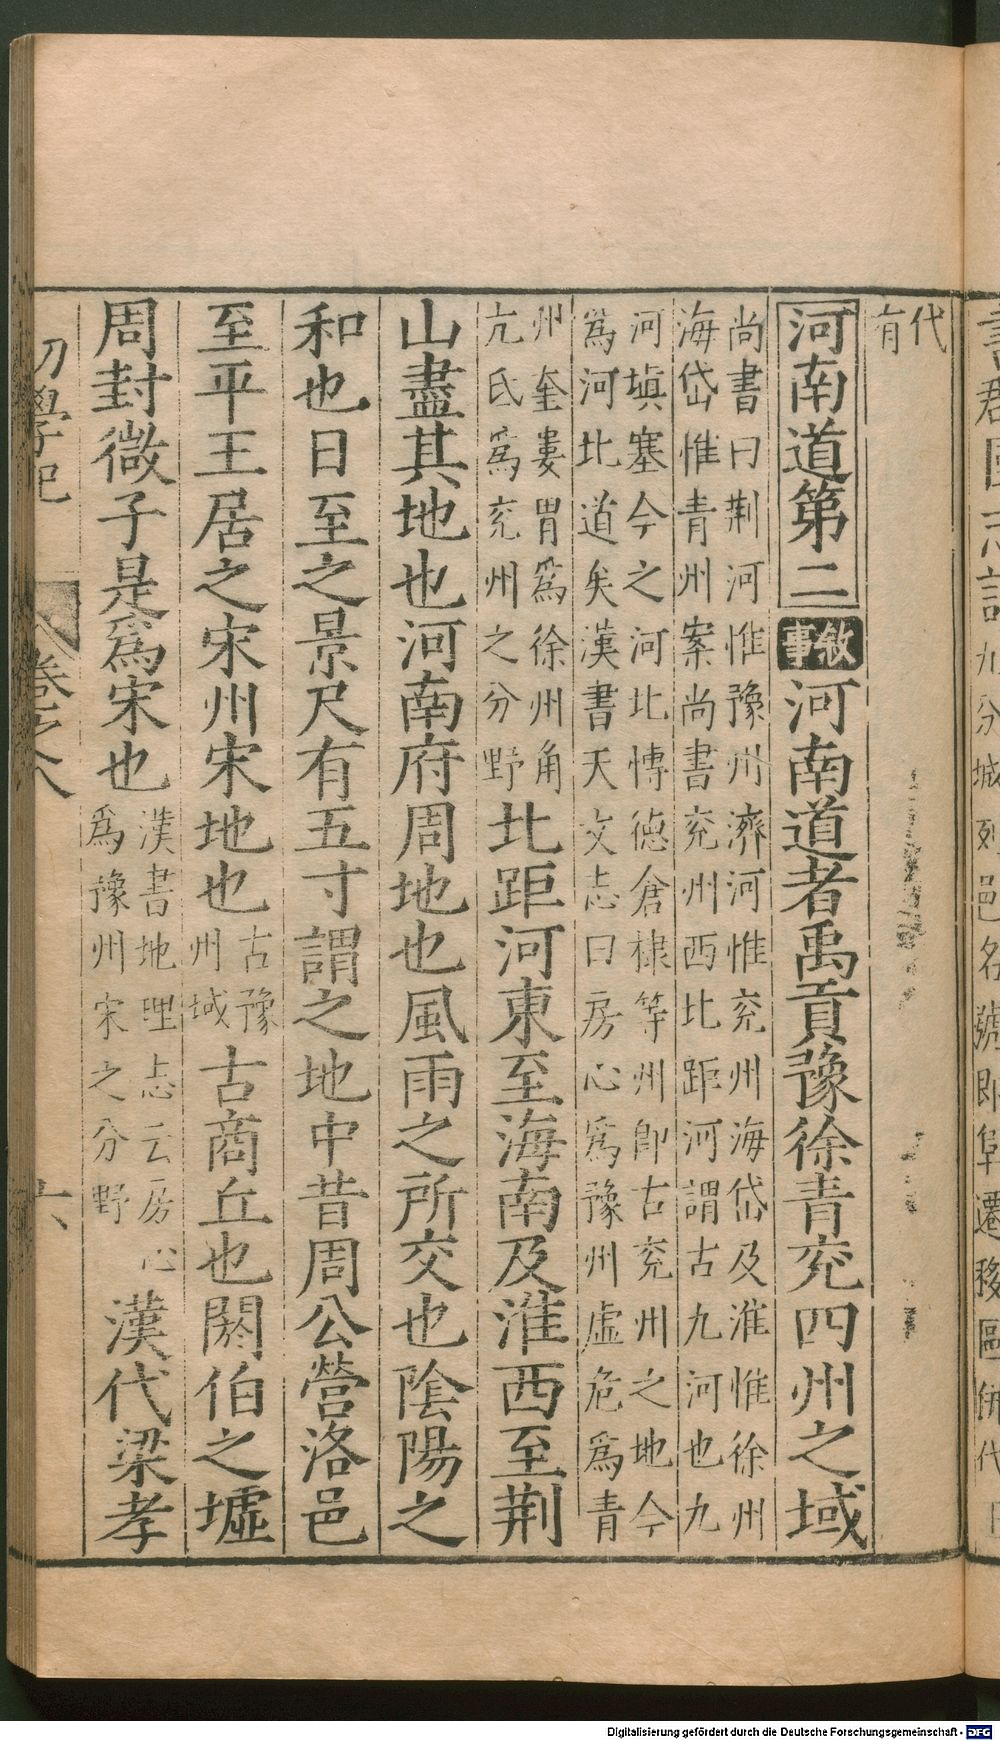 代
有
河南道第二 敘事 河南道者禹貢豫徐青兖四州之域
尚書曰荆河惟豫州濟河惟兖州海岱及淮惟徐州
海岱惟青州案尚書兖州西北距河謂古九河也九
河塡塞今之河北慱德倉棣等州即古兖州之地今
爲河北道矣漢書天文志曰房心爲豫州虛危爲青
州奎婁胃爲徐州角
亢氐爲兖州之分野
北距河東至海南及淮西至荆
山盡其地也河南府周地也風雨之所交也陰陽之
和也日至之景尺有五寸謂之地中昔周公營洛邑
至平王居之宋州宋地也
古豫
州域
古商丘也閼伯之墟
周封微子是爲宋也
漢書地理志云房心
爲豫州宋之分野
漢代梁孝
初學記 卷之八 十六
Digitalisierung gefördert durch die Deutsche Forschungsgemeinschaft - DFG